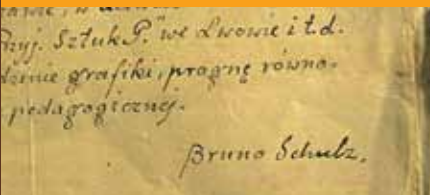 Przyj. Sztuk P." we Lwowie i t.d.
dzinie grafiki, pragnę równo-
pedagogicznej.
Bruno Schulz,